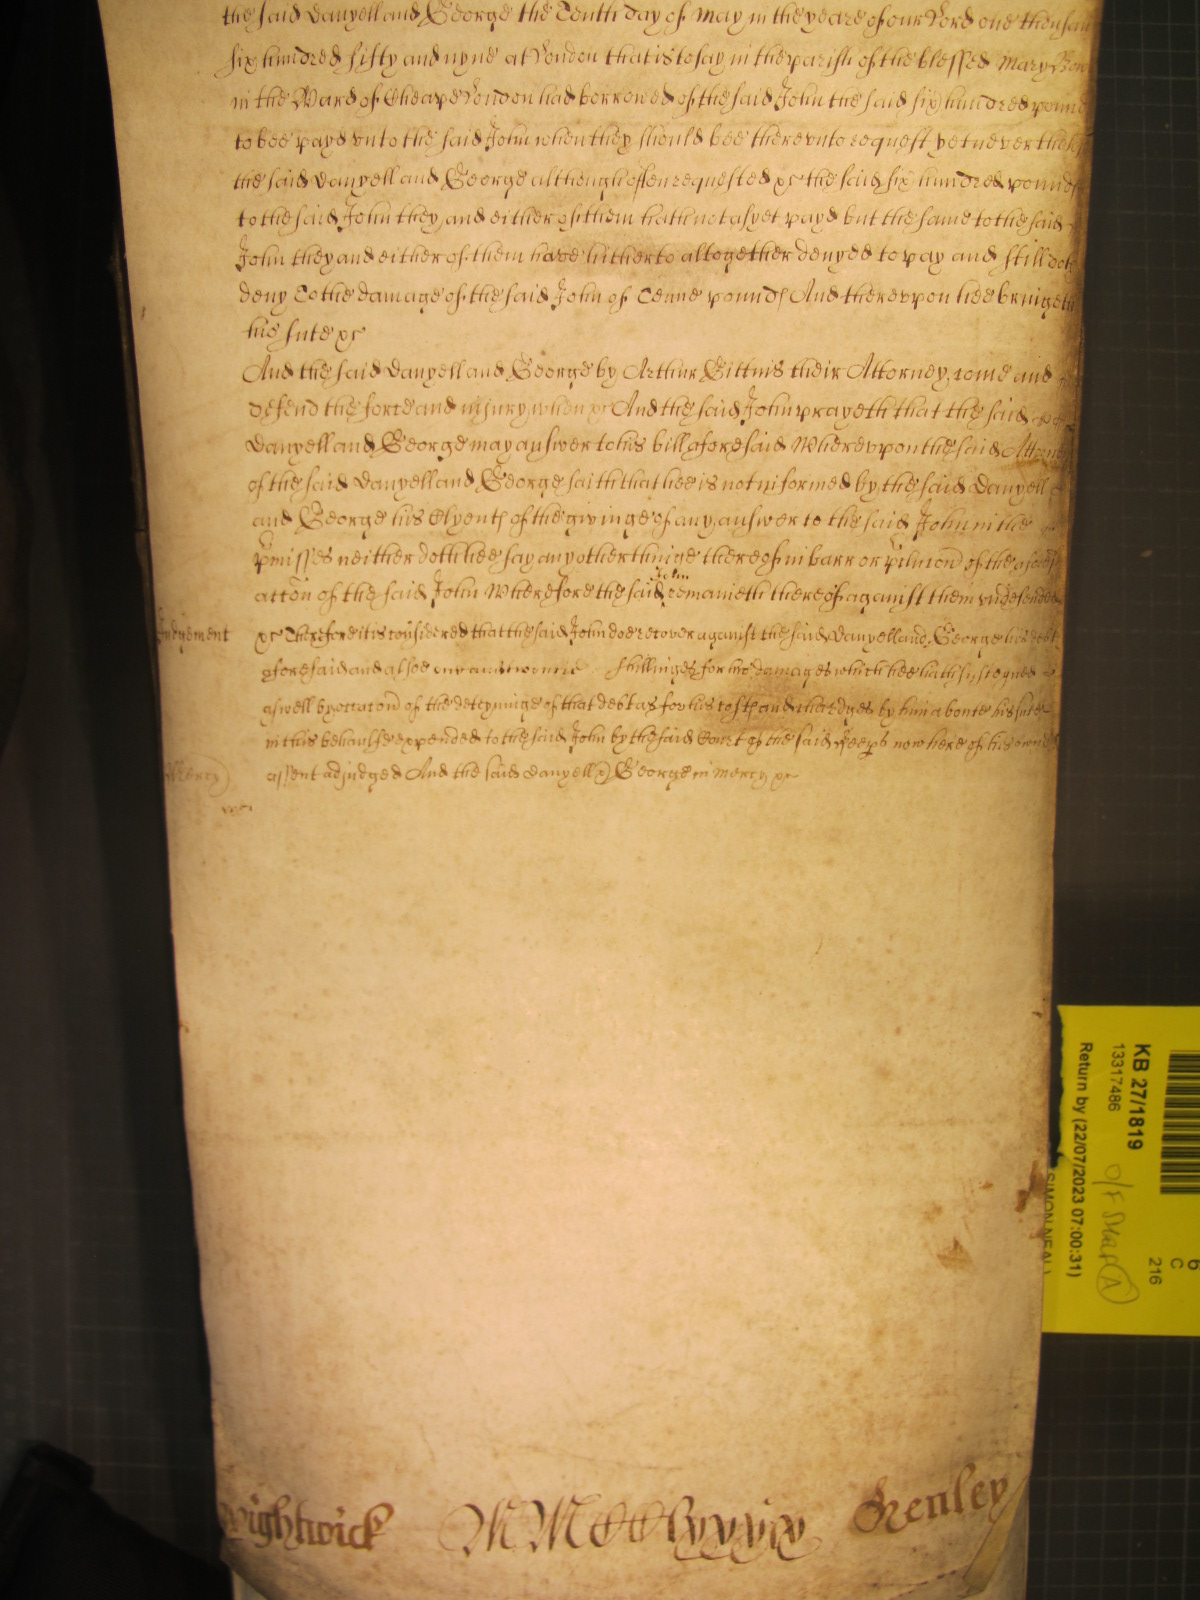 the said Danyell and George the Tenth day of May in the yeare of our Lord one thousan
six hundred fifty and nyne at London that is to say in the parish of the blessed Mary Bow
in the Ward of Cheape London had borrowed of the said John the said six hundred pound
to bee payd vnto the said John when they should bee therevnto request yet neverthel
the said Danyell and George although often requested &c the said six hundred pounds
to the said John they and either of them hath not as yet payd but the same to the said
John they and either of them have hitherto altogether denyed to pay and still doth
deny To the damage of the said John of Tenne pounds And therevpon hee bringeth
his sute &c
And the said Danyell and George by Arthur Gittins their Attorney come and
defend the force and injury when &c And the said John prayeth that the said
Danyell and George may answer to his bill aforesaid Wherevpon the said Attorn
of the said Danyell and George saith that hee is not informed by the said Danyell
and George his Clyents of the givinge of any answer to the said John in the
pmisses neither doth hee say any other thinge thereof in barr or pclusion of the aforesd
John
accon of the said John Wherefore the said remaineth thereof against them vndefended
Judgement &c Therefore it is considered that the said John doe recover against the said Danyell and George his debt
aforesaid and alsoe shillinges for his damages which hee hath susteyned
aswell by occasion of the deteyninge of that debt as for his costs and chardges by him aboute his sute
in this behaulfe expended to the said John by the said Court of the said Keeps now here of his owne
Mercy assent adjudged And the said Danyell & George in mercy &c
Wightwick MMCCLxxxix Henley
KB 27/1819
13317486
Return by (22/07/2023 07:00:31)
SIMON NEAL
O/F Map A
216
6
C